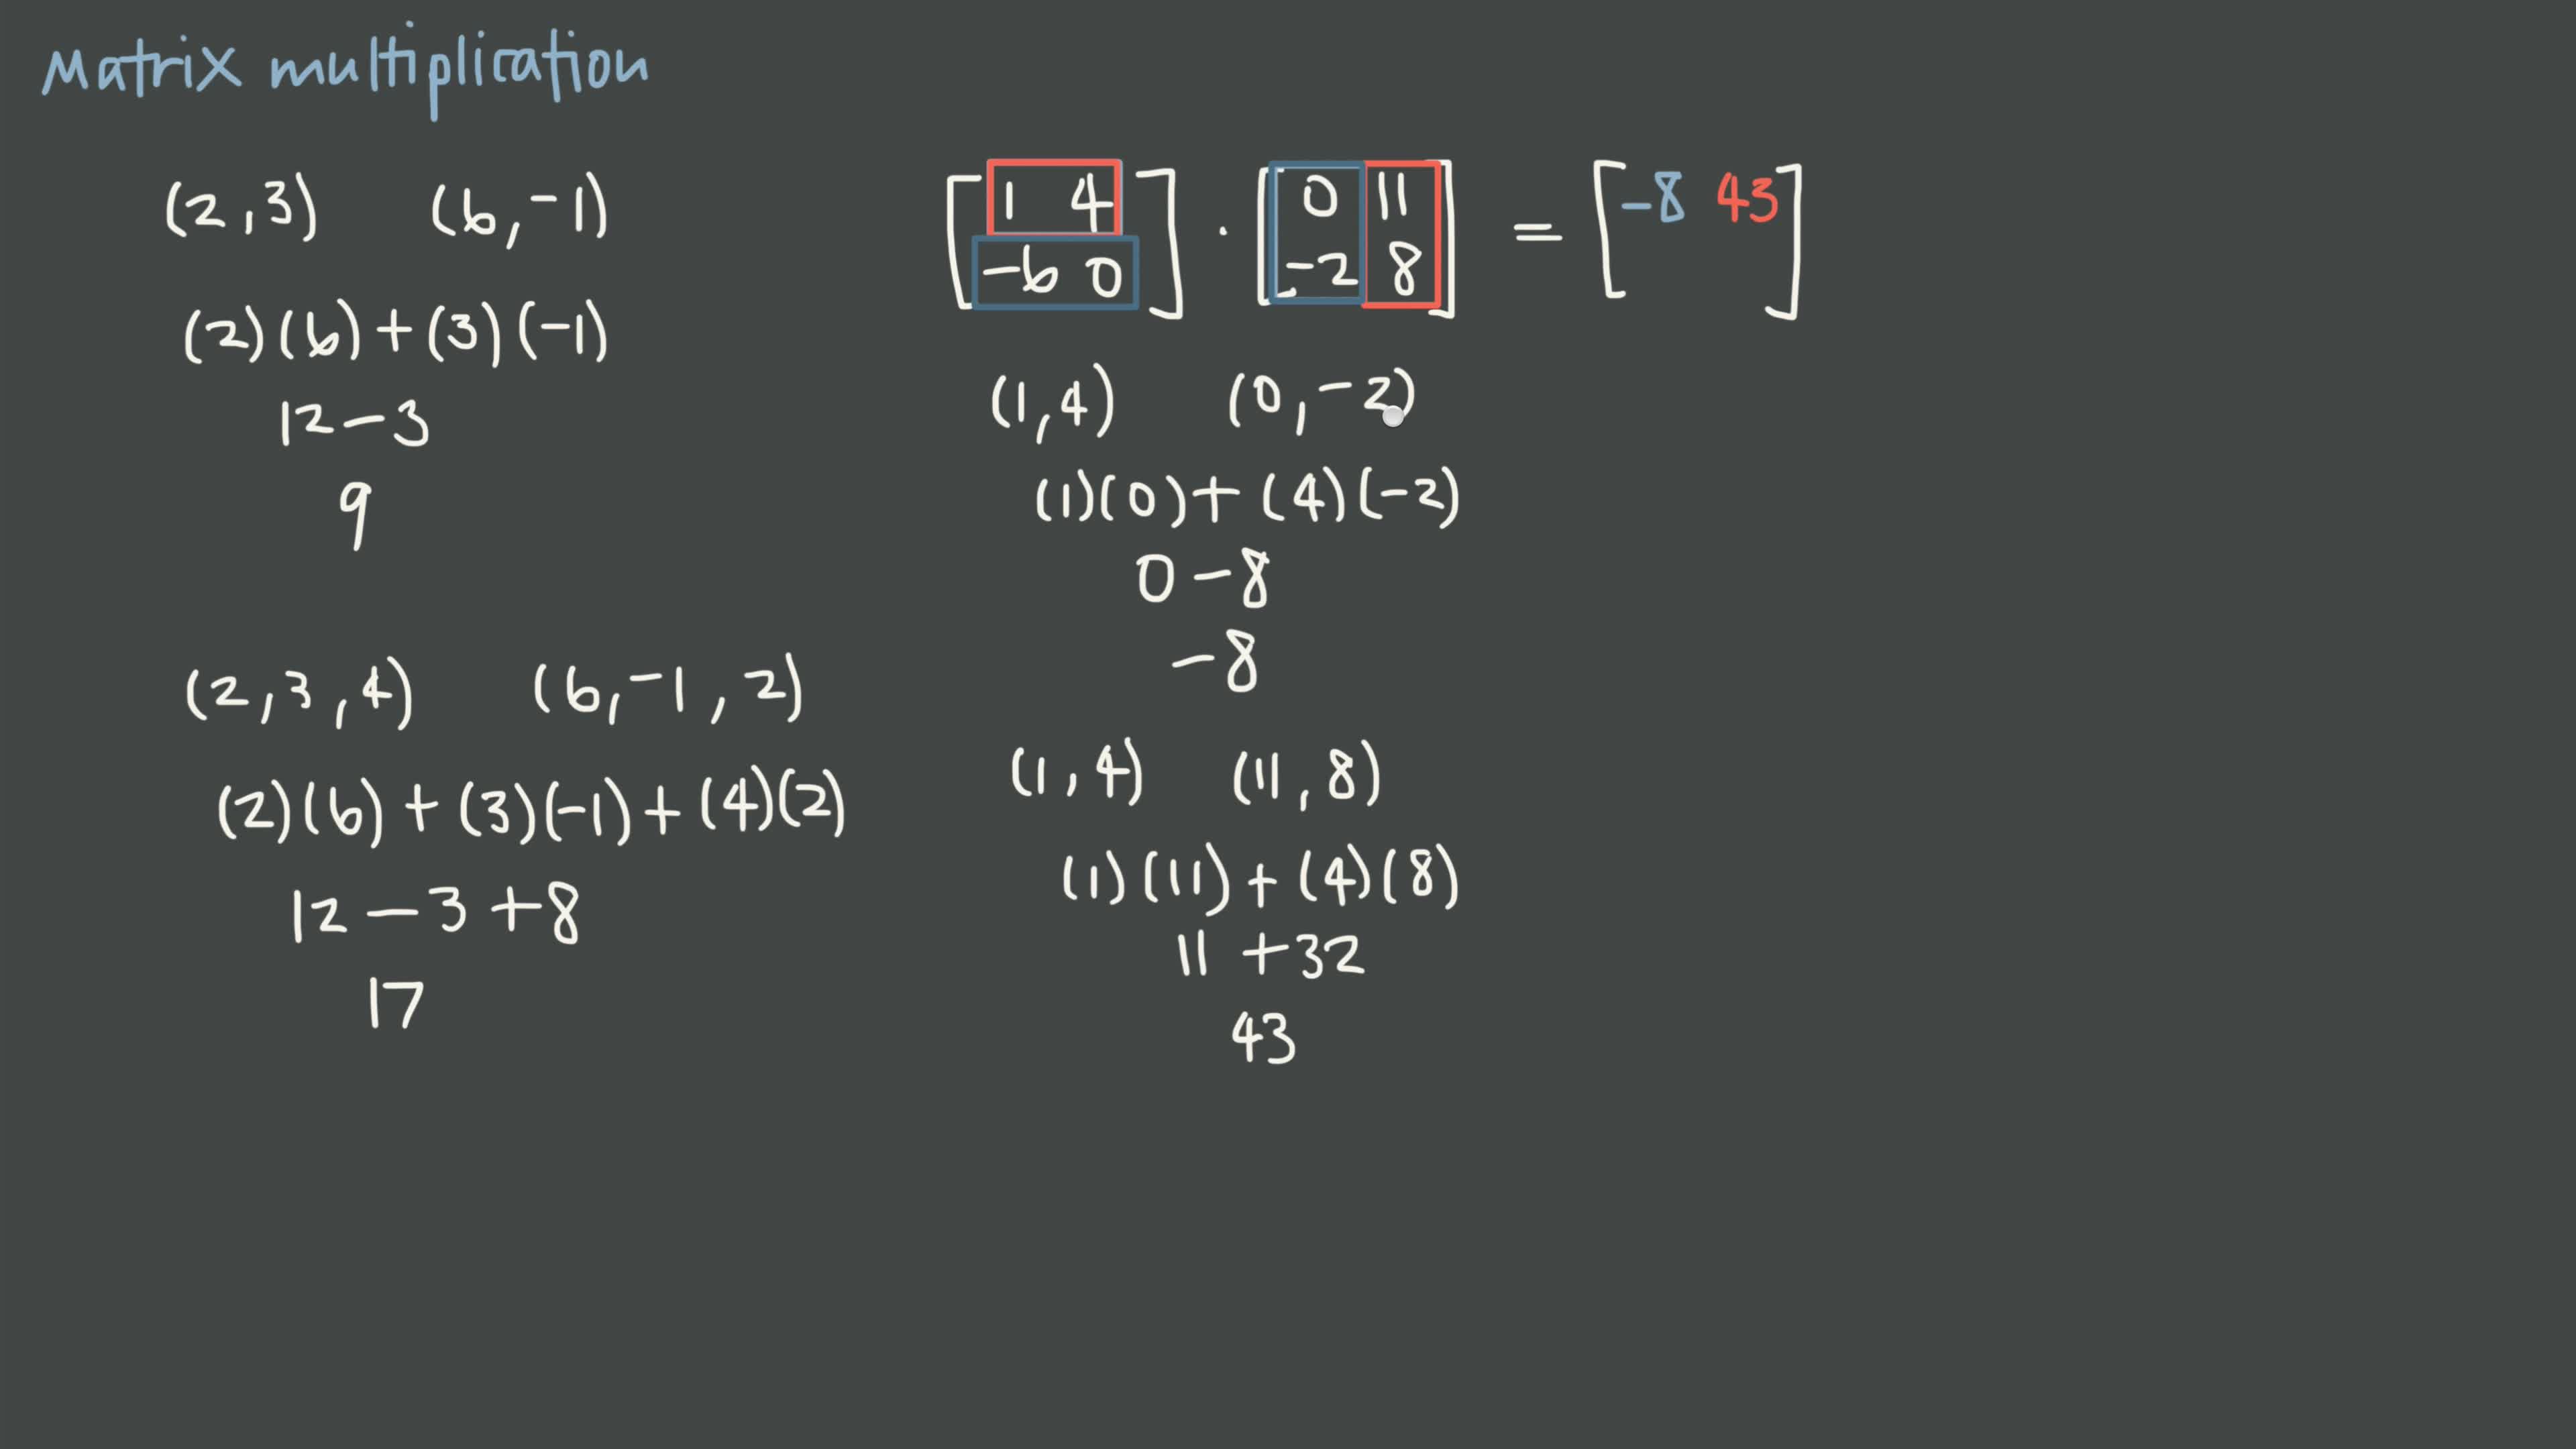 Matrix multiplication
(2,3) (6,-1)
(2)(6)+(3)(-1)
12-3
9
(2,3,4) (6,-1,2)
(2)(6)+(3)(-1)+(4)(2)
12-3+8
17
[1 4] · [0 11] = [-8 43]
-6 0 -2 8
(1,4) (0,-2)
(1)(0)+(4)(-2)
0-8
-8
(1,4) (11,8)
(1)(11)+(4)(8)
11+32
43